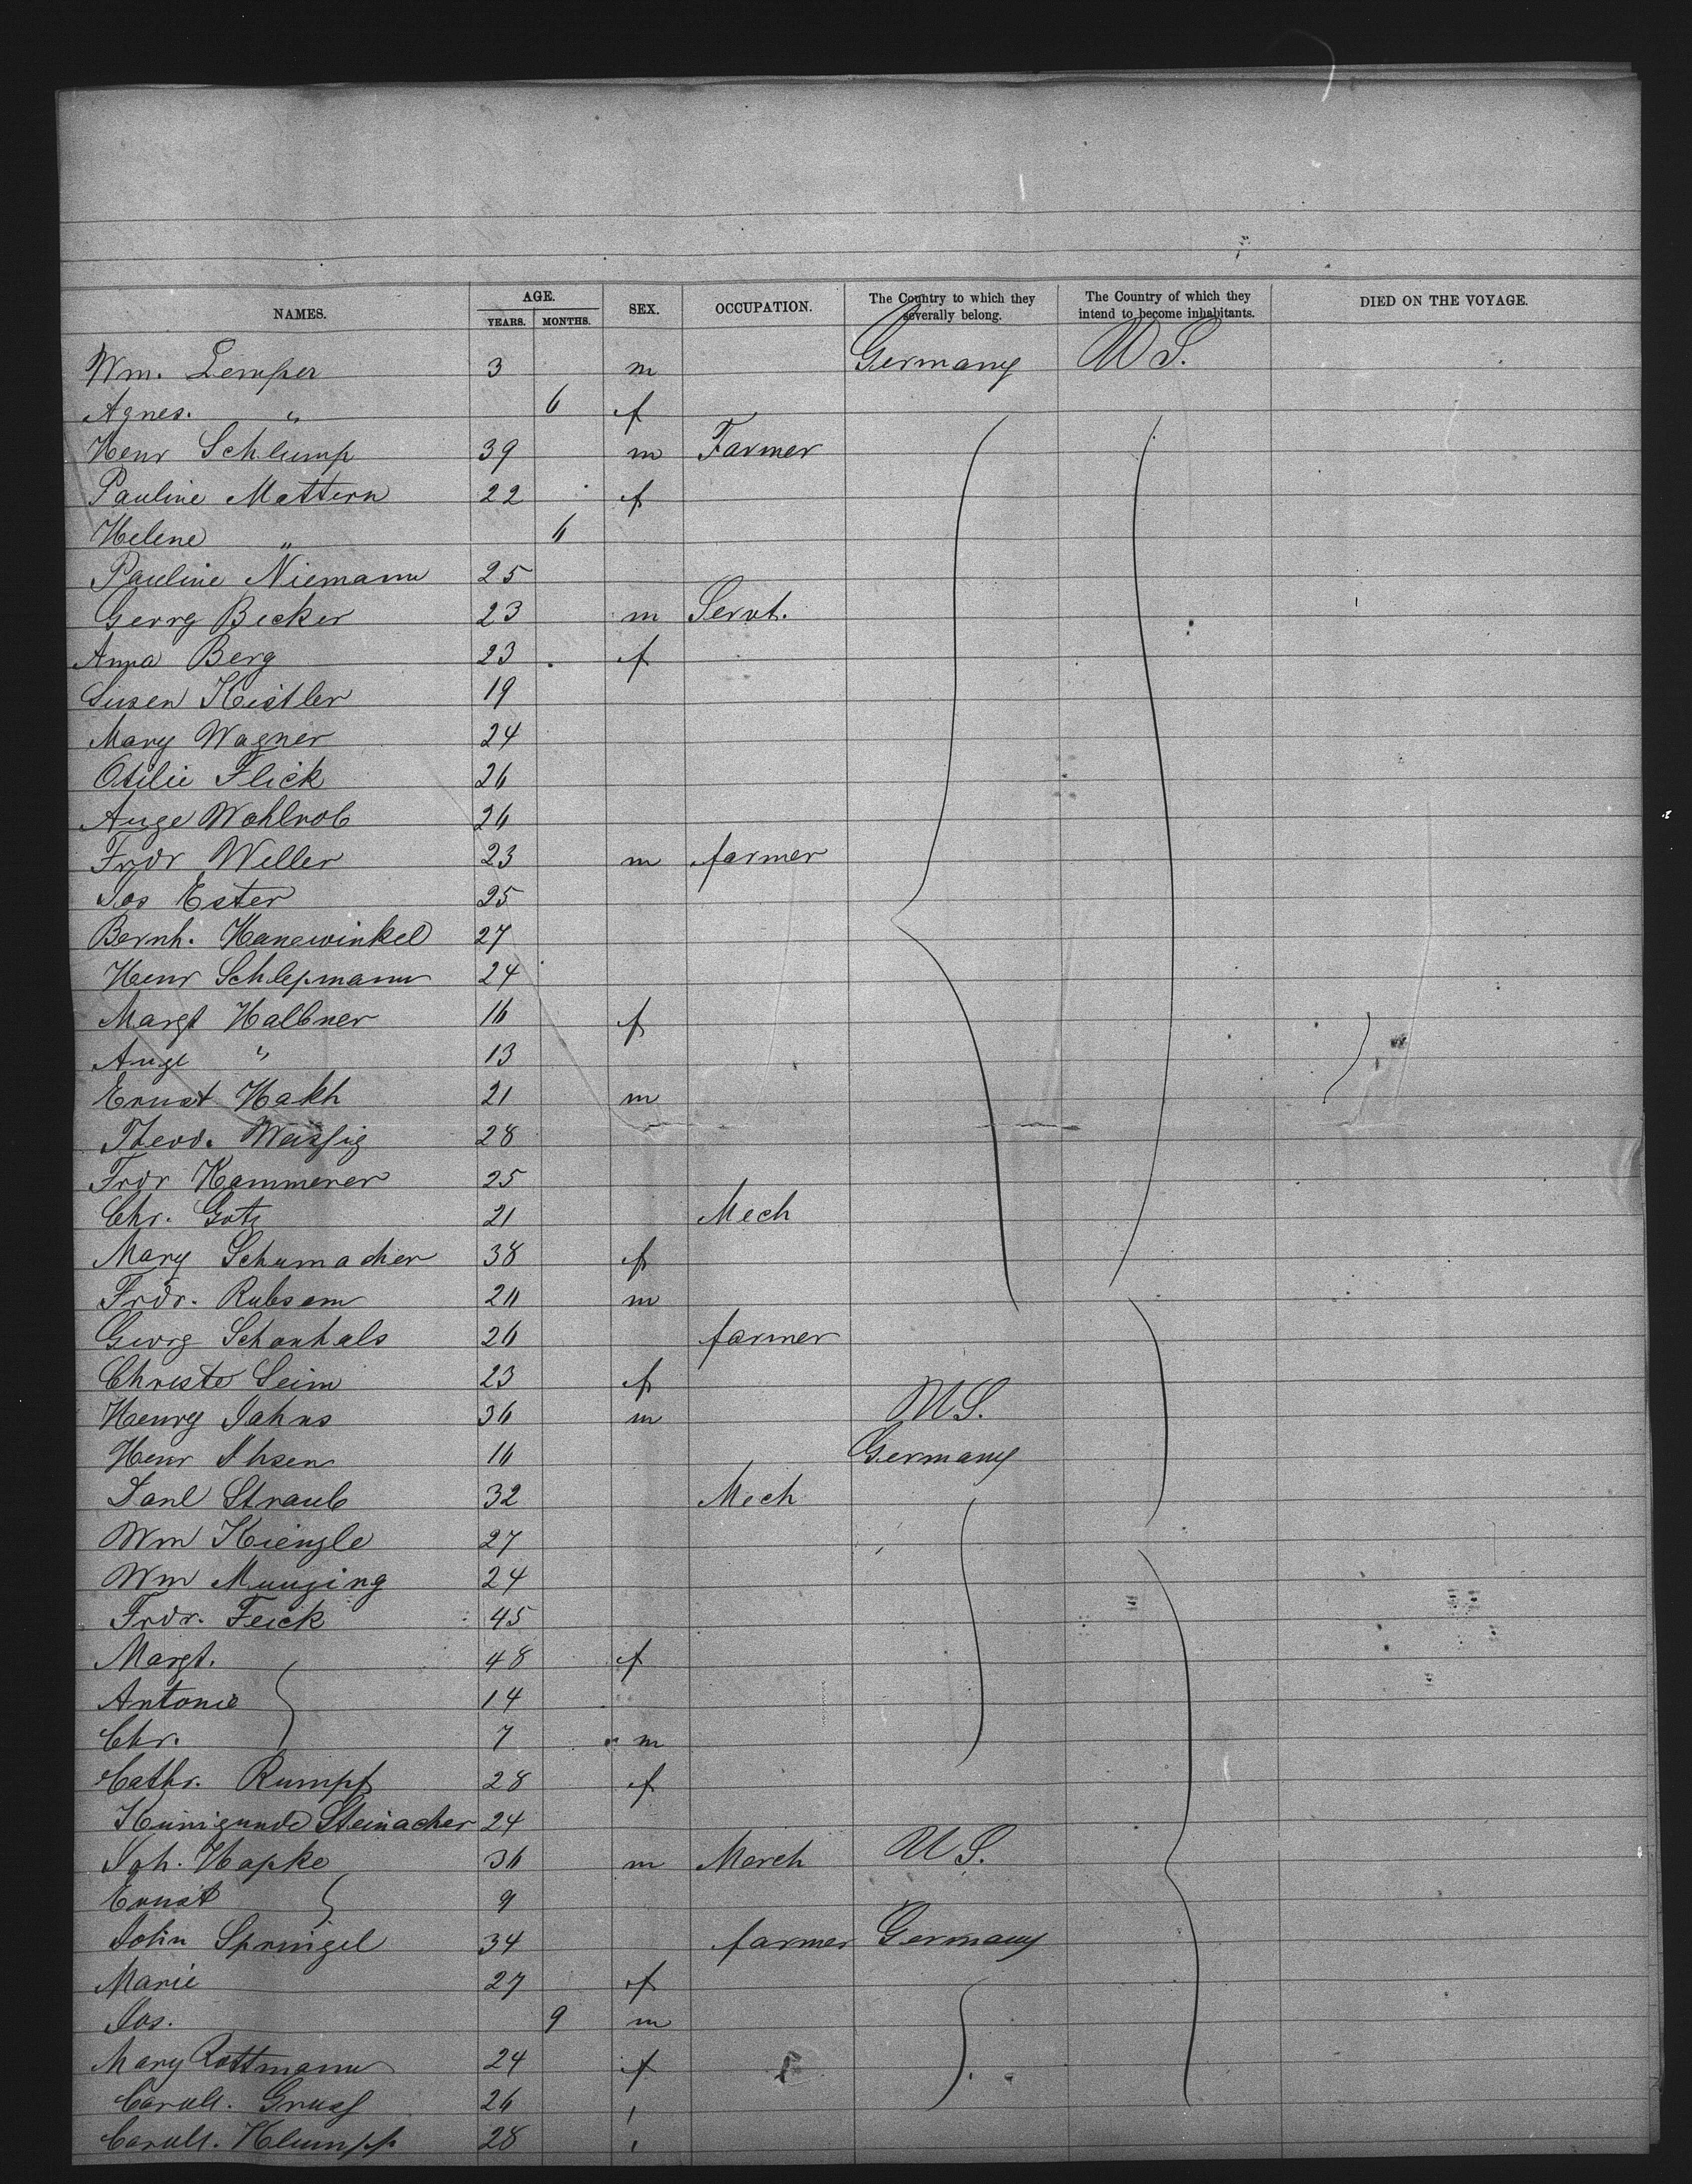 NAMES. AGE. SEX. OCCUPATION. The Country to which they severally belong. The Country of which they intend to become inhabitants. DIED ON THE VOYAGE.
YEARS. MONTHS.
Wm. Lemper 3 m Germany US.
Agnes. " 6 f
Henr Schlump 39 m Farmer
Pauline Mattern 22 f
Helene " 6
Pauline Niemann 25
Georg Becker 23 m Servt.
Anna Berg 23 f
Susen Kistler 19
Mary Wagner 24
Otilie Flick 26
Auge Wohlrob 26
Frdr Weller 23 m farmer
Jos Ester 25
Bernh. Hanewinkel 27
Henr Schlepmann 24
Margt Halbner 16 f
Auge " 13
Ernst Hakh 21 m
Theod. Weissig 28
Frdr Kammerer 25
Chr. Gotz 21 Mech
Mary Schumacher 38 f
Frdr. Rubsam 26 m
Georg Schonhals 26 farmer
Christe Seim 23 f
Henry Jahns 36 m US.
Henr Ihsen 16 Germany
Danl Straub 32 Mech
Wm Kienzle 27
Wm Munzing 24
Frdr. Feick 45
Margt. 48 f
Antonie 14
Chr. 7 m
Cathr. Rumpf 28 f
Kunigunde Steinacher 24
Joh. Hapke 36 m Merch US.
Ernst 9
John Springel 34 farmer Germany
Marie 27 f
Jos. 9 m
Mary Rottmann 24 f
Caroll. Gruss 26
Caroll. Klumpp 28